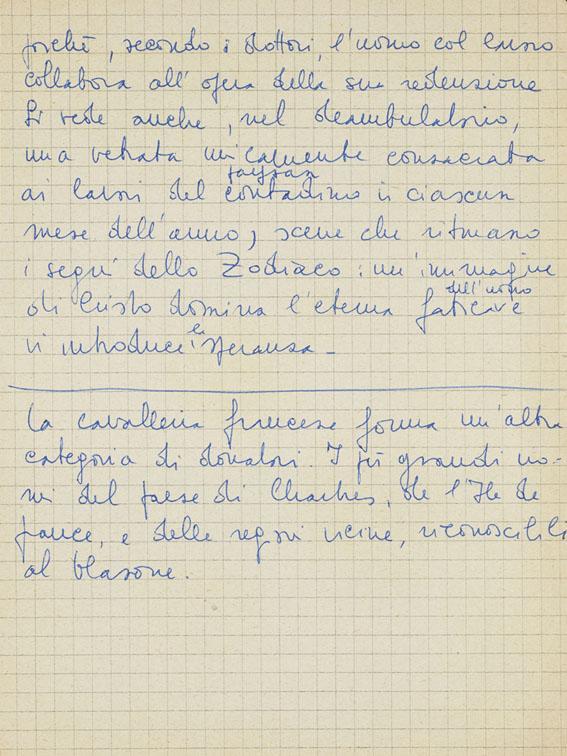 perché, secondo i dottori, l'uomo col lavoro
collabora all'opera della sua redenzione
Si vede anche, nel deambulatorio,
una vetrata unicamente consacrata
paysan
ai lavori del contadino in ciascun
mese dell'anno, scene che ritmano
i segni dello Zodiaco: un'immagine
dell'uomo
di Cristo domina l'eterna faticare
la
vi introduce speranza –
La cavalleria francese forma un'altra
categoria di donatori. I più grandi no-
mi del paese di Chartres, de l'Ile de
france, e delle regioni vicine, riconoscibili
al blasone.